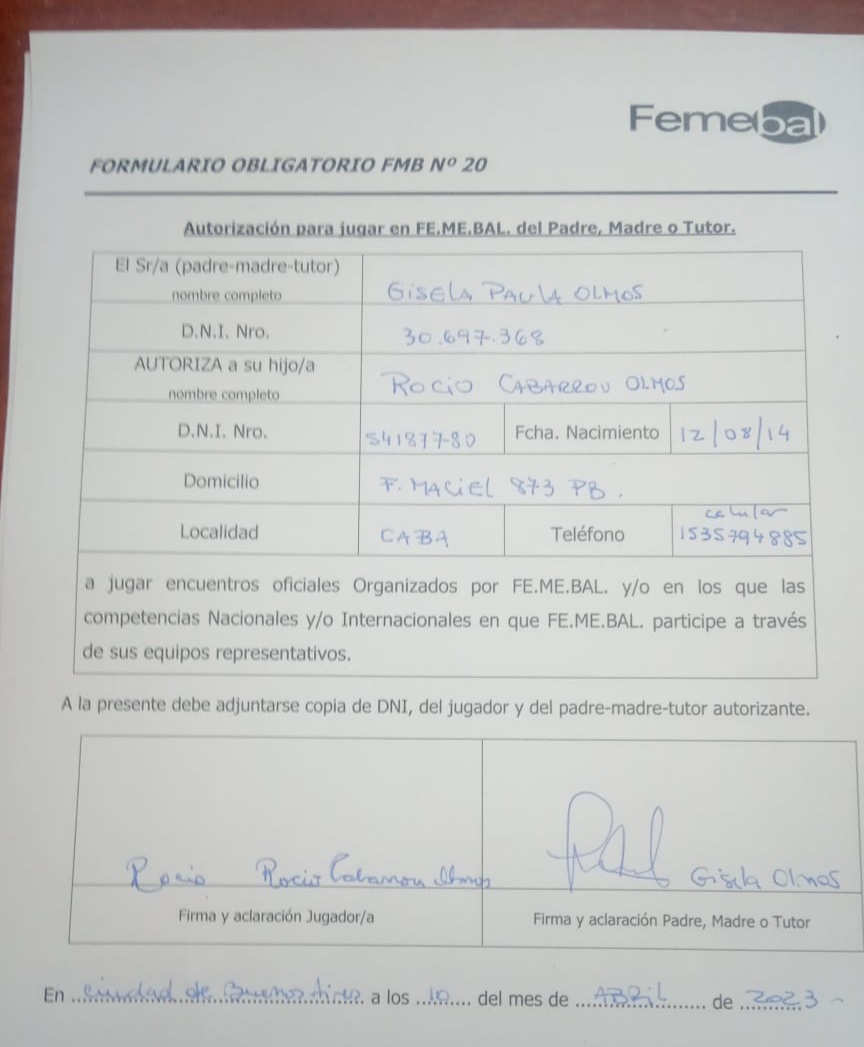 Femebal
FORMULARIO OBLIGATORIO FMB Nº 20
Autorización para jugar en FE.ME.BAL. del Padre, Madre o Tutor.
El Sr/a (padre-madre-tutor)
nombre completo
GISELA PAULA OLMOS
D.N.I. Nro.
30.697.368
AUTORIZA a su hijo/a
nombre completo
ROCIO CABARROU OLMOS
D.N.I. Nro.
541877-80
Fcha. Nacimiento
12/08/14
Domicilio
F. MACIEL 873 PB.
Localidad
CABA
Teléfono
celular
1535794885
a jugar encuentros oficiales Organizados por FE.ME.BAL. y/o en los que las
competencias Nacionales y/o Internacionales en que FE.ME.BAL. participe a través
de sus equipos representativos.
A la presente debe adjuntarse copia de DNI, del jugador y del padre-madre-tutor autorizante.
Rocio Rocio Cabarrou Olmos
Gisela Olmos
Firma y aclaración Jugador/a
Firma y aclaración Padre, Madre o Tutor
En ciudad de Buenos Aires a los 10 del mes de ABRIL de 2023